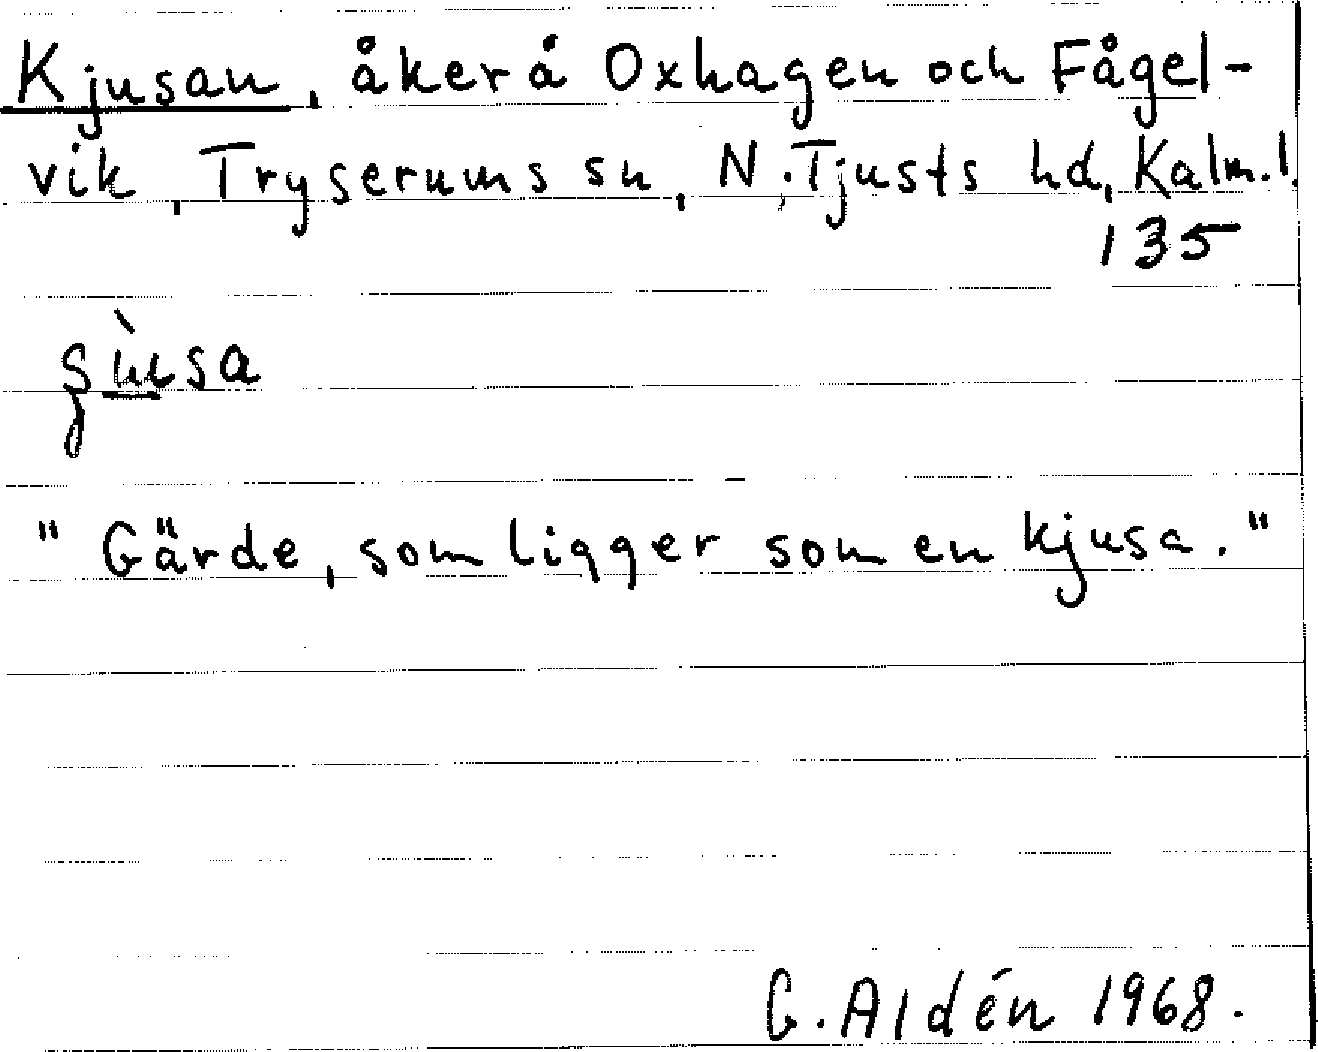 Kjusan, åker å Oxhagen och Fågel-
vik, Tryserums sn, N. Tjusts hd, Kalm.l.
135
"Gärde, som ligger som en kjusa."
G. Aldén 1968.